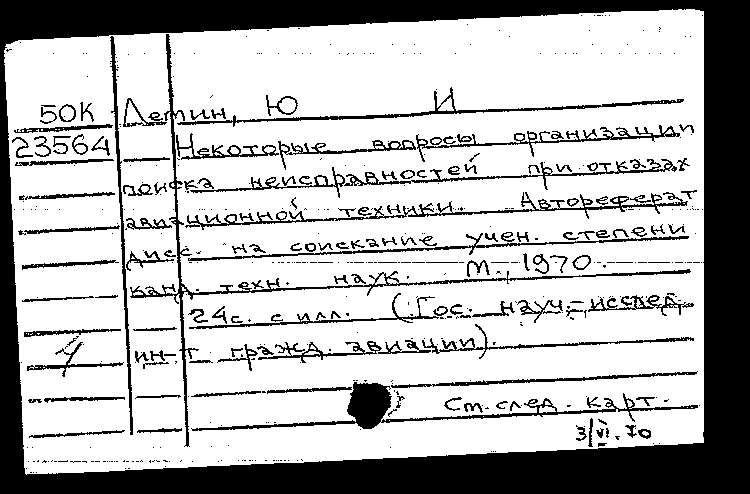 50К Летин, Ю И
23564 Некоторые вопросы организации
поиска неисправностей при отказах
авиационной техники. Автореферат
дисс. на соискание учен. степени
канд. техн. наук. М., 1970.
24с. с илл. (Гос. науч.-исслед.
ин-т гражд. авиации).
См. след. карт.
3/VI.70